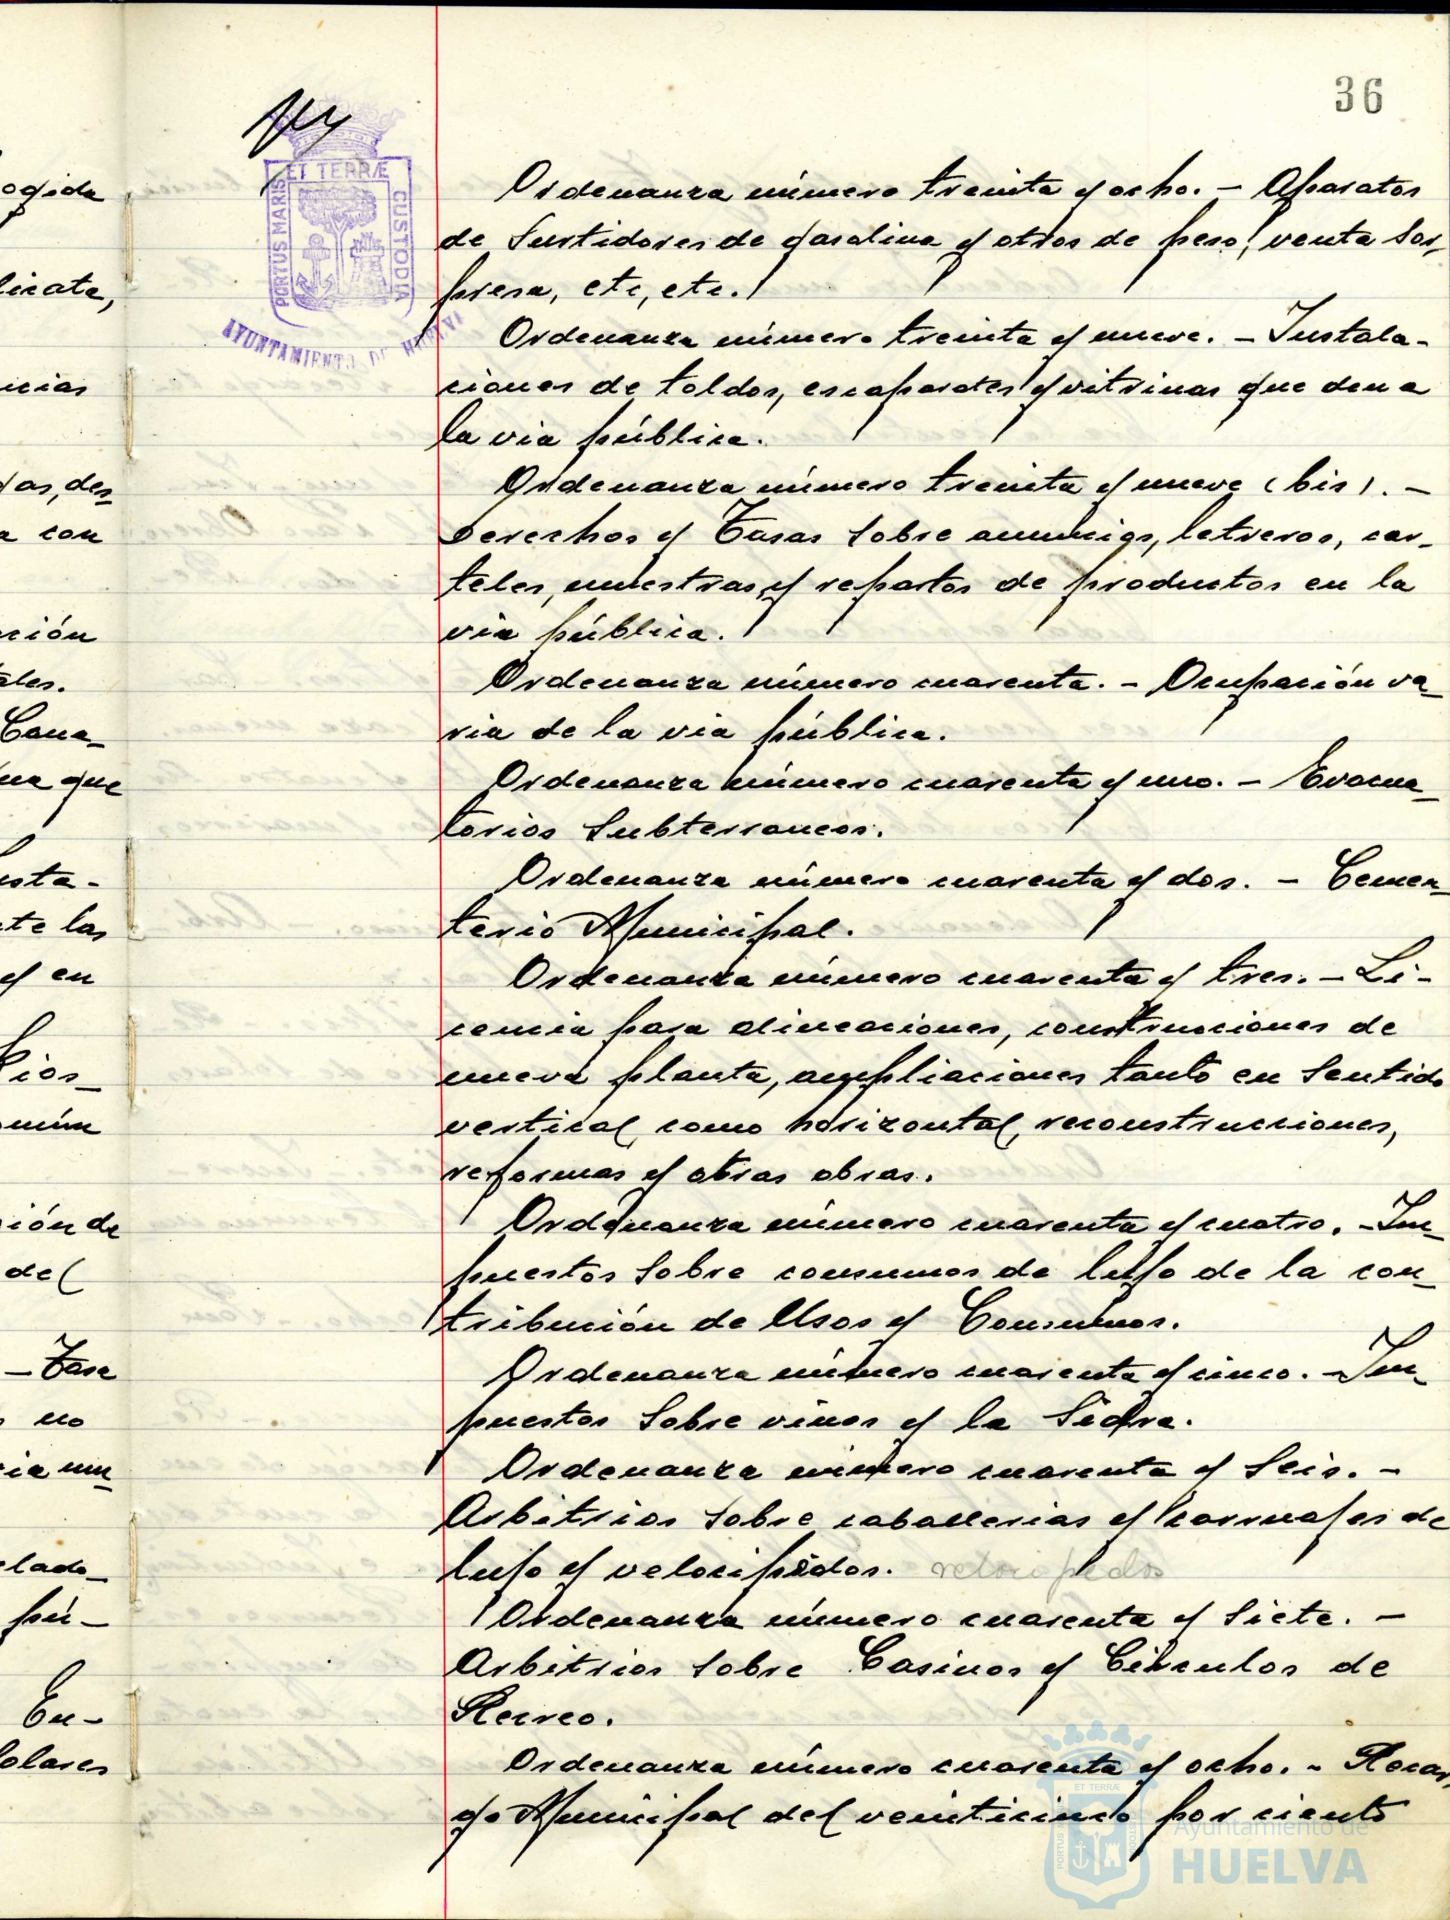 36
ET TERRÆ
PORTUS MARIS
CUSTODIA
AYUNTAMIENTO DE HUELVA
Ordenanza número treinta y ocho. - Aparatos
de Surtidores de gasolina y otros de peso, venta Sor-
presa, etc, etc.
Ordenanza número treinta y nueve. - Instala-
ciones de toldos, escaparates y vitrinas que den a
la via pública.
Ordenanza número treinta y nueve (bis). -
Derechos y Tasas Sobre anuncios, letreros, car-
teles, muestras, y repartos de productos en la
via pública.
Ordenanza número cuarenta. - Ocupación va-
ria de la via pública.
Ordenanza número cuarenta y uno. - Evacua-
torios Subterraneos.
Ordenanza número cuarenta y dos. - Cemen-
terio Municipal.
Ordenanza número cuarenta y tres. - Li-
cencia para alineaciones, construcciones de
nueva planta, ampliaciones tanto en Sentido
vertical como horizontal, reconstrucciones,
reformas y otras obras.
Ordenanza número cuarenta y cuatro. - Im-
puestos Sobre consumos de lujo de la con-
tribución de Usos y Consumos.
Ordenanza número cuarenta y cinco. - Im-
puestos Sobre vinos y la Sidra.
Ordenanza número cuarenta y Seis. -
Arbitrios Sobre caballerias y carruajes de
lujo y velocipedos. velocipedos
Ordenanza número cuarenta y Siete. -
Arbitrios Sobre Casinos y Circulos de
Recreo.
Ordenanza número cuarenta y ocho. - Recar-
go Municipal del veinticinco por ciento
ogida
licata,
ncias
das, des-
a con
ción
ales.
Cana-
ua que
usta-
te las
y en
cios-
omún
ión de
del
- Tasa
s no
ria mu-
elado-
pú-
En-
Solares
ET TERRÆ
Ayuntamiento de
HUELVA